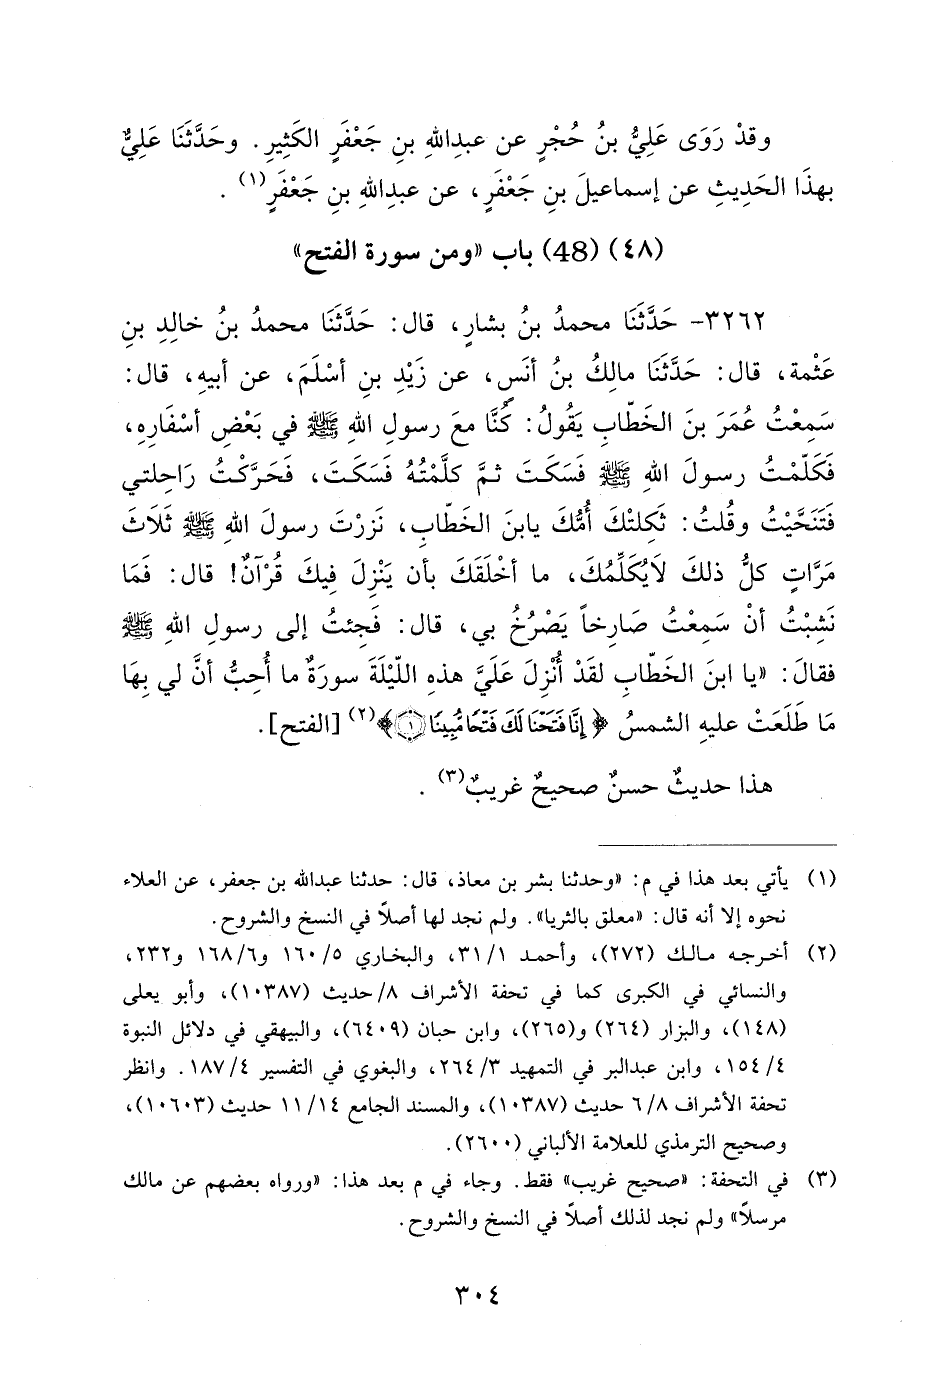 وقدْ رَوَى عَلِيُّ بنُ حُجْرٍ عن عبدِاللهِ بنِ جَعْفَرٍ الكَثِيرِ. وحَدَّثَنَا عَلِيٌّ
بهذَا الحَدِيثِ عن إسماعيلَ بنِ جَعْفَرٍ، عن عبدِاللهِ بنِ جَعْفَرٍ(١) .
(٤٨) (48) باب «ومن سورة الفتح»
٣٢٦٢- حَدَّثَنَا محمدُ بنُ بشارٍ، قال: حَدَّثَنَا محمدُ بنُ خالِدِ بنِ
عَثْمة، قال: حَدَّثَنَا مالِكُ بنُ أنَسٍ، عن زَيْدِ بنِ أسْلَمَ، عن أبيهِ، قال:
سَمِعْتُ عُمَرَ بنَ الخَطَّابِ يَقُولُ: كُنَّا معَ رسولِ اللهِ ﷺ في بَعْضِ أسْفَارِهِ،
فَكَلّمْتُ رسولَ اللهِ ﷺ فَسَكَتَ ثمَّ كلَّمْتُهُ فَسَكَتَ، فَحَرَّكْتُ رَاحِلتي
فَتَنَحَّيْتُ وقُلتُ: ثَكِلتْكَ أُمُّكَ يابنَ الخَطّابِ، نَزرْتَ رسولَ اللهِ ﷺ ثَلَاثَ
مَرَّاتٍ كلُّ ذلكَ لَايُكَلِّمُكَ، ما أخْلَقَكَ بأن يَنْزِلَ فِيكَ قُرْآنٌ! قال: فَمَا
نَشِبْتُ أنْ سَمِعْتُ صَارِخاً يَصْرُخُ بي، قال: فَجِئتُ إلى رسولِ اللهِ ﷺ
فقالَ: «يا ابنَ الخَطّابِ لقَدْ أُنْزِلَ عَلَيَّ هذهِ اللّيْلَةَ سورَةٌ ما أُحِبُّ أنَّ لي بِهَا
مَا طَلَعَتْ عليهِ الشمسُ ﴿إِنَّا فَتَحْنَا لَكَ فَتْحًا مُّبِينًا ١﴾(٢) [الفتح].
هذا حديثٌ حسنٌ صحيحٌ غريبٌ(٣) .
(١) يأتي بعد هذا في م: «وحدثنا بشر بن معاذ، قال: حدثنا عبدالله بن جعفر، عن العلاء
نحوه إلا أنه قال: «معلق بالثريا». ولم نجد لها أصلاً في النسخ والشروح.
(٢) أخرجه مالك (٢٧٢)، وأحمد ٣١/١، والبخاري ١٦٠/٥ و١٦٨/٦ و٢٣٢،
والنسائي في الكبرى كما في تحفة الأشراف ٨/حديث (١٠٣٨٧)، وأبو يعلى
(١٤٨)، والبزار (٢٦٤) و(٢٦٥)، وابن حبان (٦٤٠٩)، والبيهقي في دلائل النبوة
١٥٤/٤، وابن عبدالبر في التمهيد ٢٦٤/٣، والبغوي في التفسير ١٨٧/٤. وانظر
تحفة الأشراف ٦/٨ حديث (١٠٣٨٧)، والمسند الجامع ١١/١٤ حديث (١٠٦٠٣)،
وصحيح الترمذي للعلامة الألباني (٢٦٠٠).
(٣) في التحفة: «صحيح غريب» فقط. وجاء في م بعد هذا: «ورواه بعضهم عن مالك
مرسلاً» ولم نجد لذلك أصلاً في النسخ والشروح.
٣٠٤